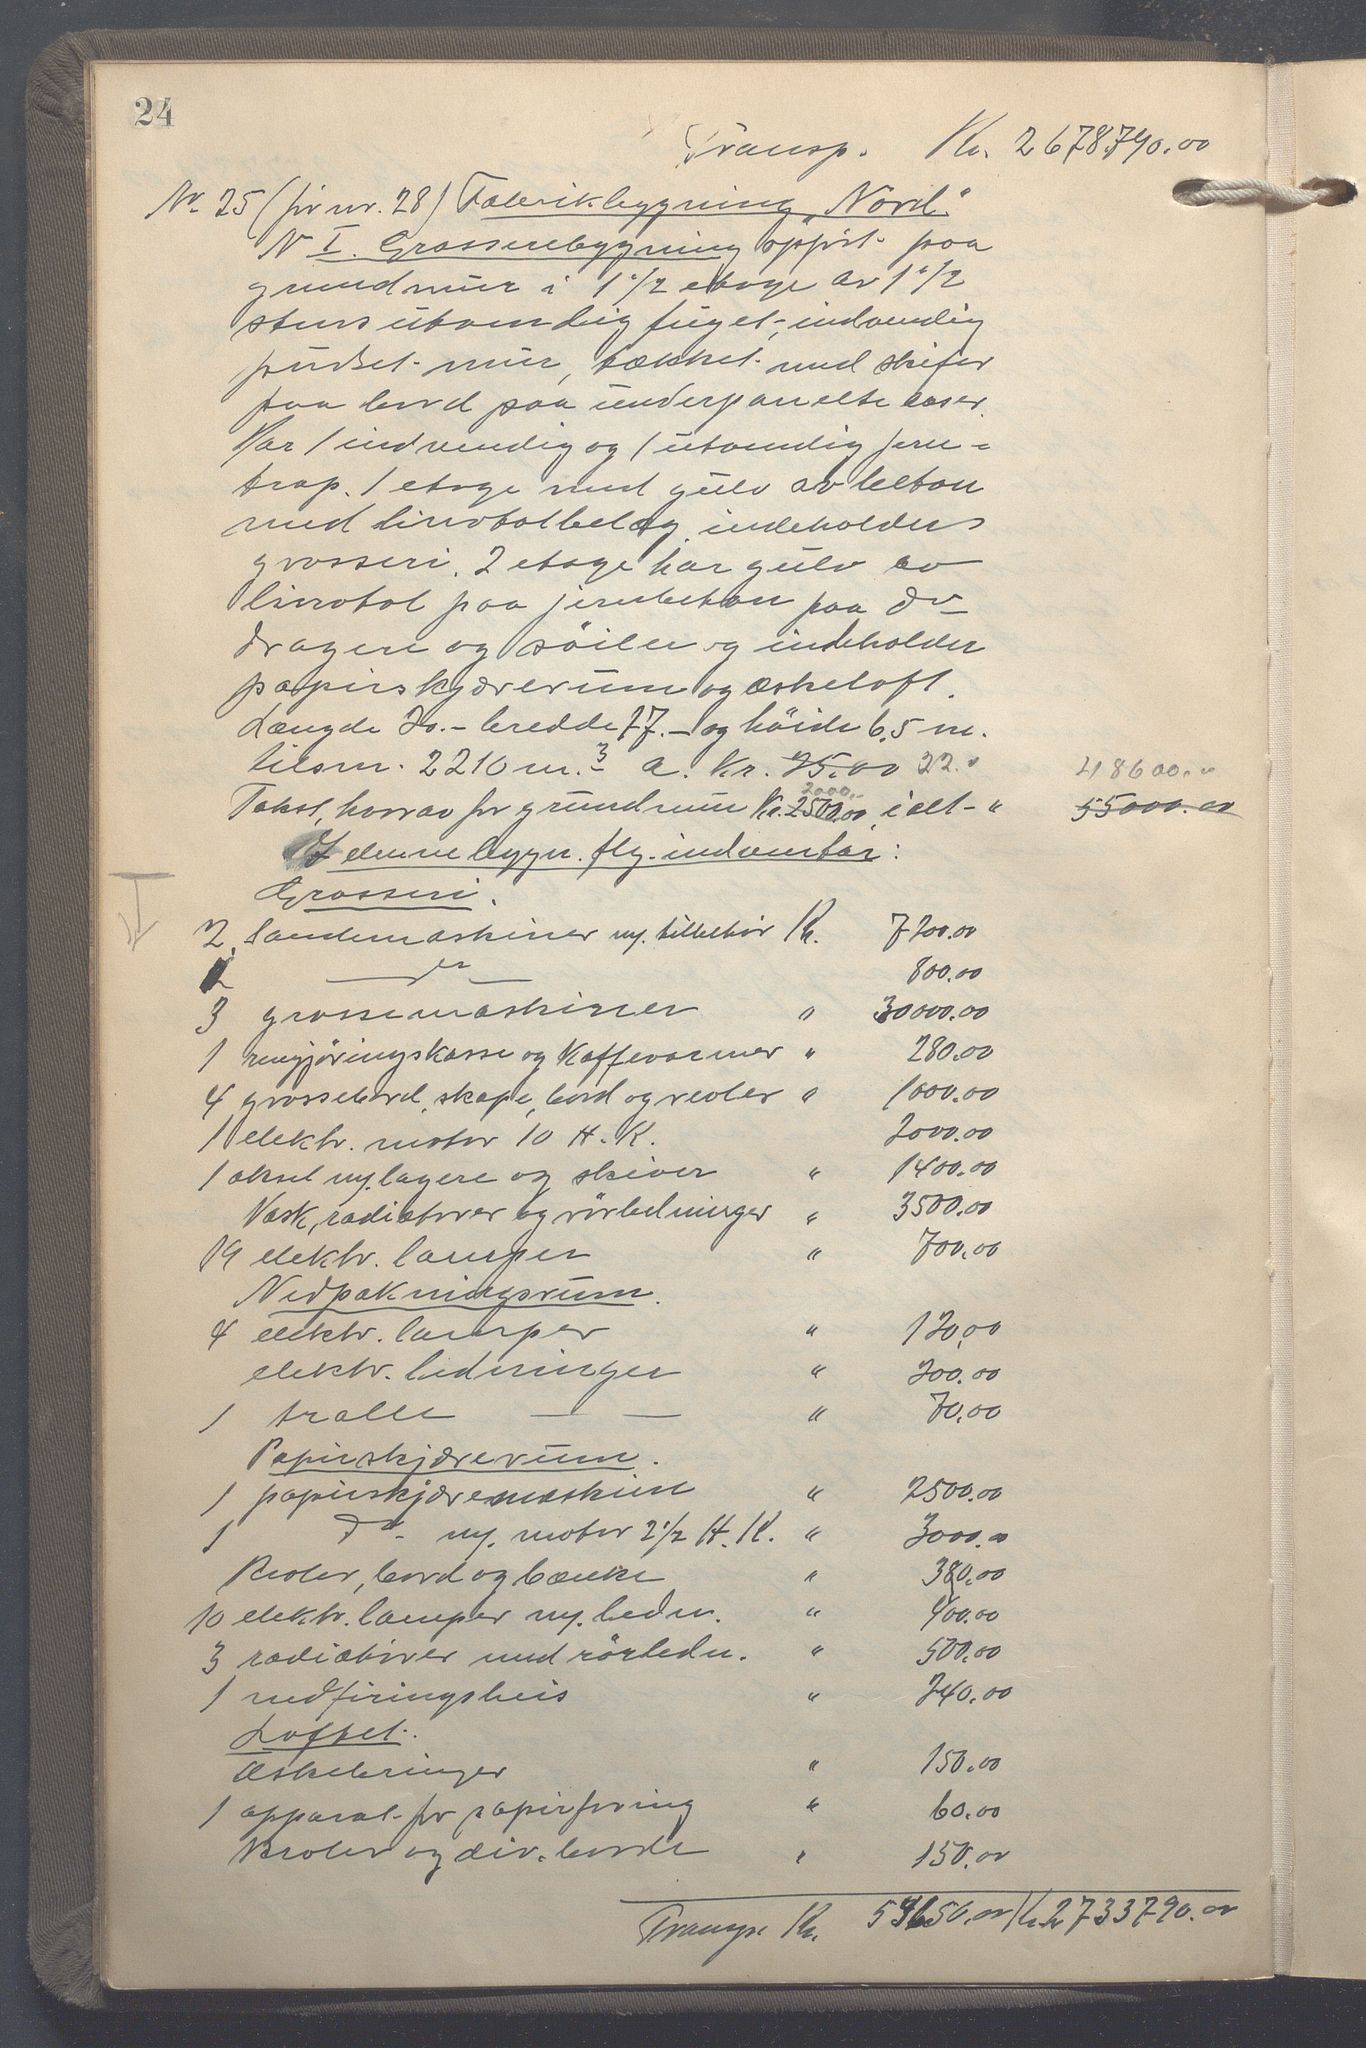 24
Transp. Kr. 2678790.00
Nr. 25 (før nr. 28) Fabrikbygning „Nord"
N I. Grosseriebygning opført paa
grundmur i 1 1/2 etage av 1 1/2
stens utvendig fuget, indvendig
pudset mur, tækket med skifer
paa bord paa underpanelte aaser.
Har 1 indvendig og 1 utvendig jern-
trap. 1 etage med gulv av beton
med linotolbelæg indeholder
grosseri. 2 etage har gulv av
linotol paa jernbeton paa do
dragere og søiler og indeholder
papirskjærerum og æskeloft.
Længde 20.- bredde 17.- og høide 6,5 m.
tilsm. 2210 m.3 a. Kr. 25.00 22.-
48600.-
2000.-
Takst, hvorav for grundmur Kr. 2500.00, ialt - " 55000.00
I denne bygn. flg. indventar:
Grosseri.
2 Sandemaskiner m/ tilbehør Kr. 7200.00
2 — do — 800.00
3 grossemaskiner " 30000.00
1 rengjøringskasse og Kaffevarmer " 280.00
4 grossebord, skape, bord og reoler " 1000.00
1 elektr. motor 10 H. K. 2000.00
1 aksel m/ lagere og skiver " 1400.00
Vask, radiatorer og rörledninger " 3500.00
19 elektr. lamper " 700.00
Nedpakningsrum.
4 elektr. lamper " 120.00
elektr. ledninger " 200.00
1 tralle — — " 70.00
Papirskjærerum.
1 papirskjæremaskin " 2500.00
1 do - m/ motor 2 1/2 H. K. " 3000.00
Reoler, bord og bænke " 380.00
10 elektr. lamper m/ ledn. " 400.00
3 radiatorer med rörledn. " 500.00
1 nedfiringsheis " 240.00
Loftet.
Æskebringer " 150.00
1 apparat for papirforing " 60.00
Reoler og div. borde " 150.00
Transp. Kr. 57650.00 Kr. 2733790.00